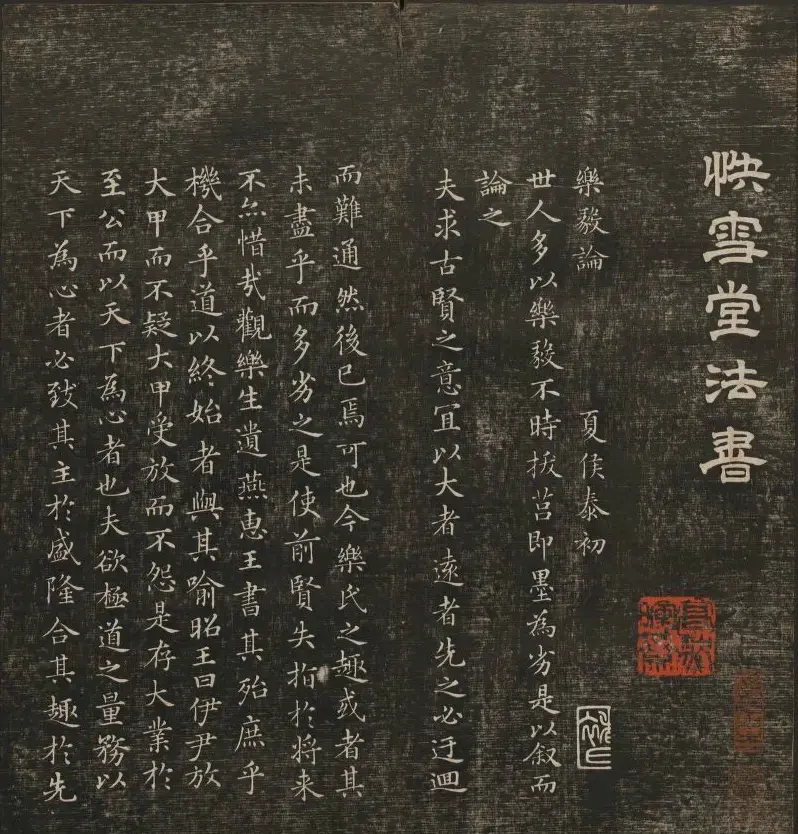 快雪堂法書
樂毅論 夏侯泰初
世人多以樂毅不時拔莒即墨為劣是以叙而
論之
夫求古賢之意宜以大者遠者先之必迂迴
而難通然後已焉可也今樂氏之趣或者其
未盡乎而多劣之是使前賢失指於将来
不亦惜哉觀樂生遺燕惠王書其殆庶乎
機合乎道以終始者與其喻昭王曰伊尹放
大甲而不疑大甲受放而不怨是存大業於
至公而以天下為心者也夫欲極道之量務以
天下為心者必致其主於盛隆合其趣於先